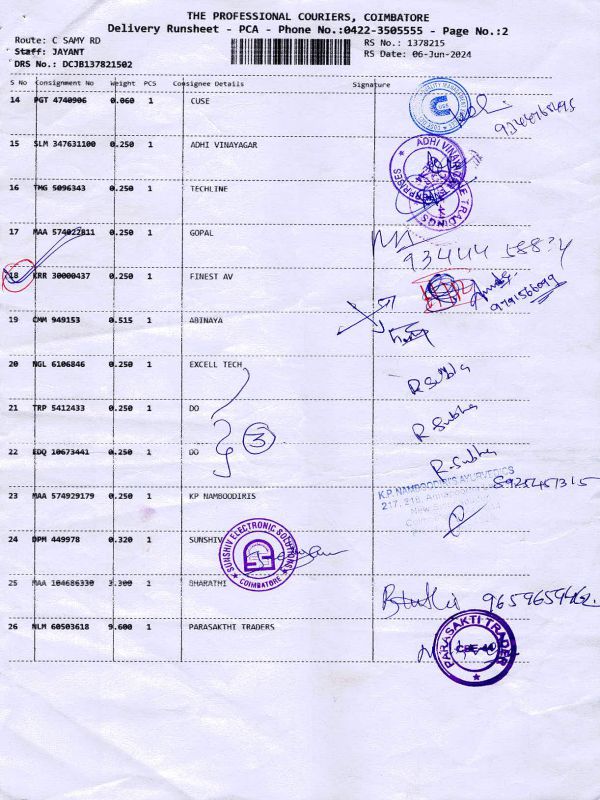 THE PROFESSIONAL COURIERS, COIMBATORE
Delivery Runsheet - PCA - Phone No.:0422-3505555 - Page No.:2
Route: C SAMY RD
RS No.: 1378215
Staff: JAYANT
RS Date: 06-Jun-2024
DRS No.: DCJB137821502
S No Consignment No Weight PCS Consignee Details Signature
14 PGT 4740906 0.060 1 CUSE
15 SLM 347631100 0.250 1 ADHI VINAYAGAR
ADHI VINAYAGAR TRADINGS
16 TMG 5096343 0.250 1 TECHLINE
17 MAA 574022811 0.250 1 GOPAL
18 KRR 30000437 0.250 1 FINEST AV
9791566099
19 CMM 949153 0.515 1 ABINAYA
20 NGL 6106846 0.250 1 EXCELL TECH
R.Subha
21 TRP 5412433 0.250 1 DO
R Subha
3
22 EDQ 10673441 0.250 1 DO
R.Subha
K.P. NAMBOODIRI'S AYURVEDICS
23 MAA 574929179 0.250 1 KP NAMBOODIRIS
24 DPM 449978 0.320 1 SUNSHIV
SUNSHIV ELECTRONIC SOLUTIONS
COIMBATORE
25 MAA 104686330 3.300 1 BHARATHI
26 NLM 60503618 9.600 1 PARASAKTHI TRADERS
PARASAKTI TRADER